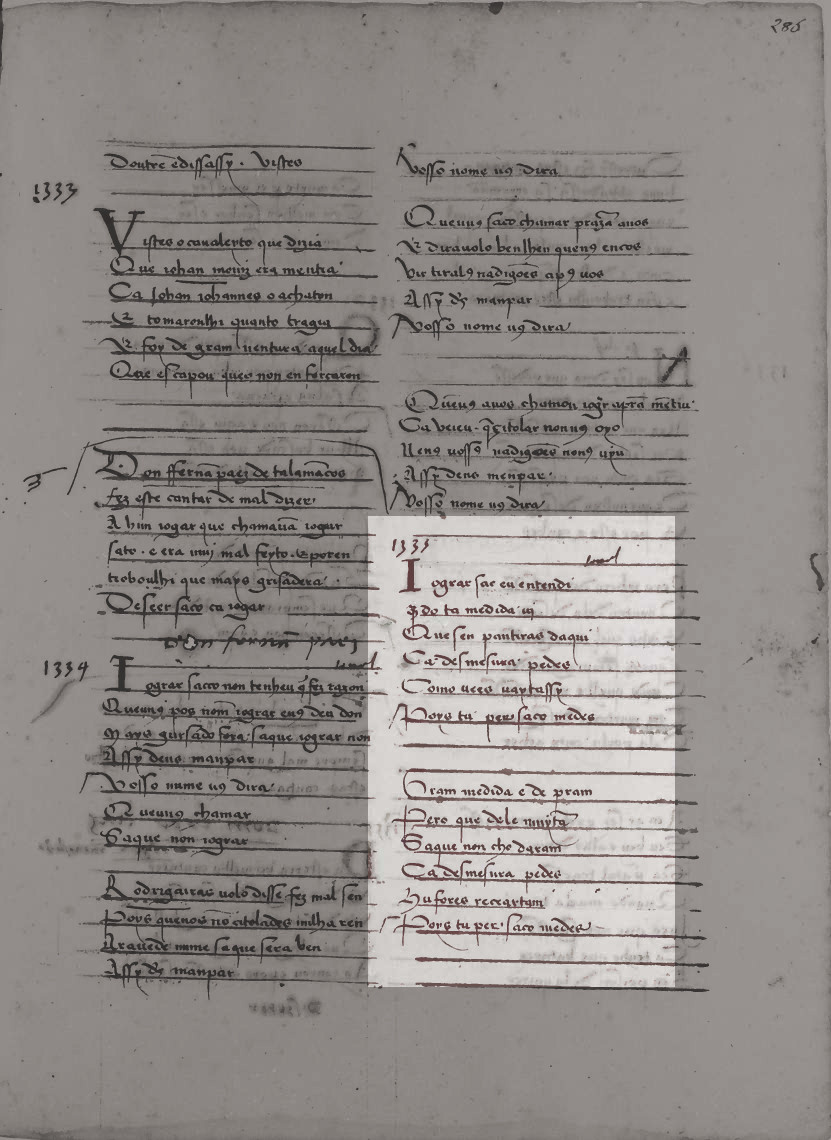 285
Doutre e dissassy . Vistes
1333
Vistes o caualeyro que dizia
Que iohan moniz era mentia
Ca Johan iohannes o achaton
E tomaronlhi quanto tragia
E foy de gram uentura aquel dia
Que escapou queo non enforcaron
Don ffernã paez de talamãcos
fez este cantar de mal dizer
A hun iogar que chamauã iogar
saco . e era muj mal feyto . e poren
troboulhi que mays grisadera
De seer saco ca iogar
don fernã paez
1334
Iograr sacco non tenheu q̃ fez razon
Queuus pos nom̃ iograr euus deu don
Mays guisado fora saque iograr non
Assy deus manpar
Vosso nume uus dira
Queuus chamar
Saque non iograr
Rodrigairas uolo disse fez mal sen
Poys quenos no citolades nulha ren
Arauede nume saque sera ben
Assy ds̃ manpar
Vosso nome uus dira
Queuus saco chamar prazã auos
E dirauolo ben lhen quens encos
Vir tirals nadigões aps uos
Assy ds̃ manpar
Vosso nome uus dira
Queuus auos chamou iogr̃ apram̃ mẽtiu
Ca ueieu q̃ citolar nonuus oyo
Nens uossos nadigões nons uyu
Assy deus menpar
Vosso nome uus dira
1335
Iograr sac eu entendi
q̃do ta medida ui
Que sen pantiras daqui
Ca desmesura pedes
Como uees uaytassy
Poys tu per saco medes
Gram medida e de pram
Pero que dele muyta
Saque non cho daram
Ca desmesura pedes
Poys tu per saco medes